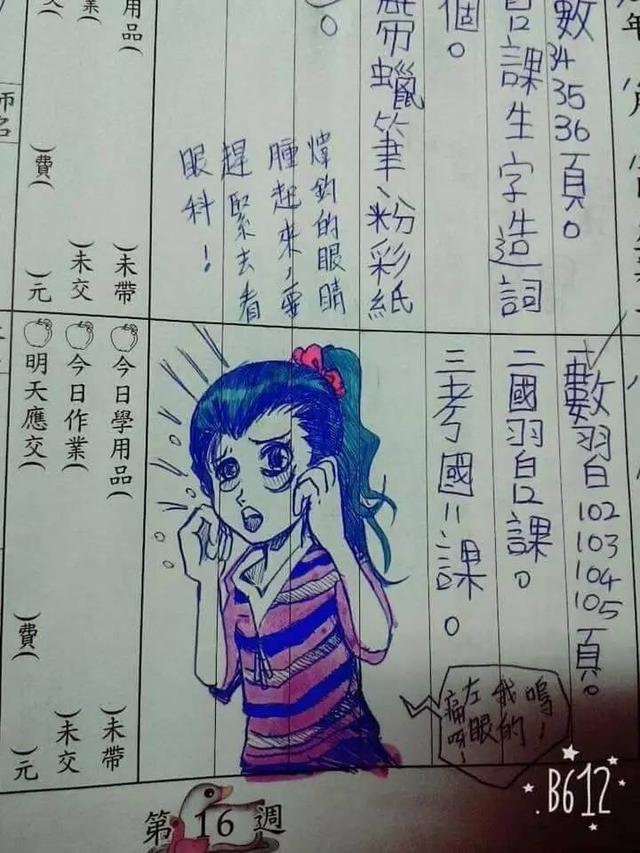 數34 35 36頁。
課生字造詞
個。
蠟筆、粉彩紙
煒鈞的眼睛
腫起來,要
趕緊去看
眼科!
用品 )未帶
業 )未交
)費 )元
師名
一數習 102 103 104 105頁。
二國習 課。
三考國11課。
嗚!
我的
左眼
痛呀!
今日學用品) )未帶
今日作業) )未交
明天應交) )費 )元
第16週
B612